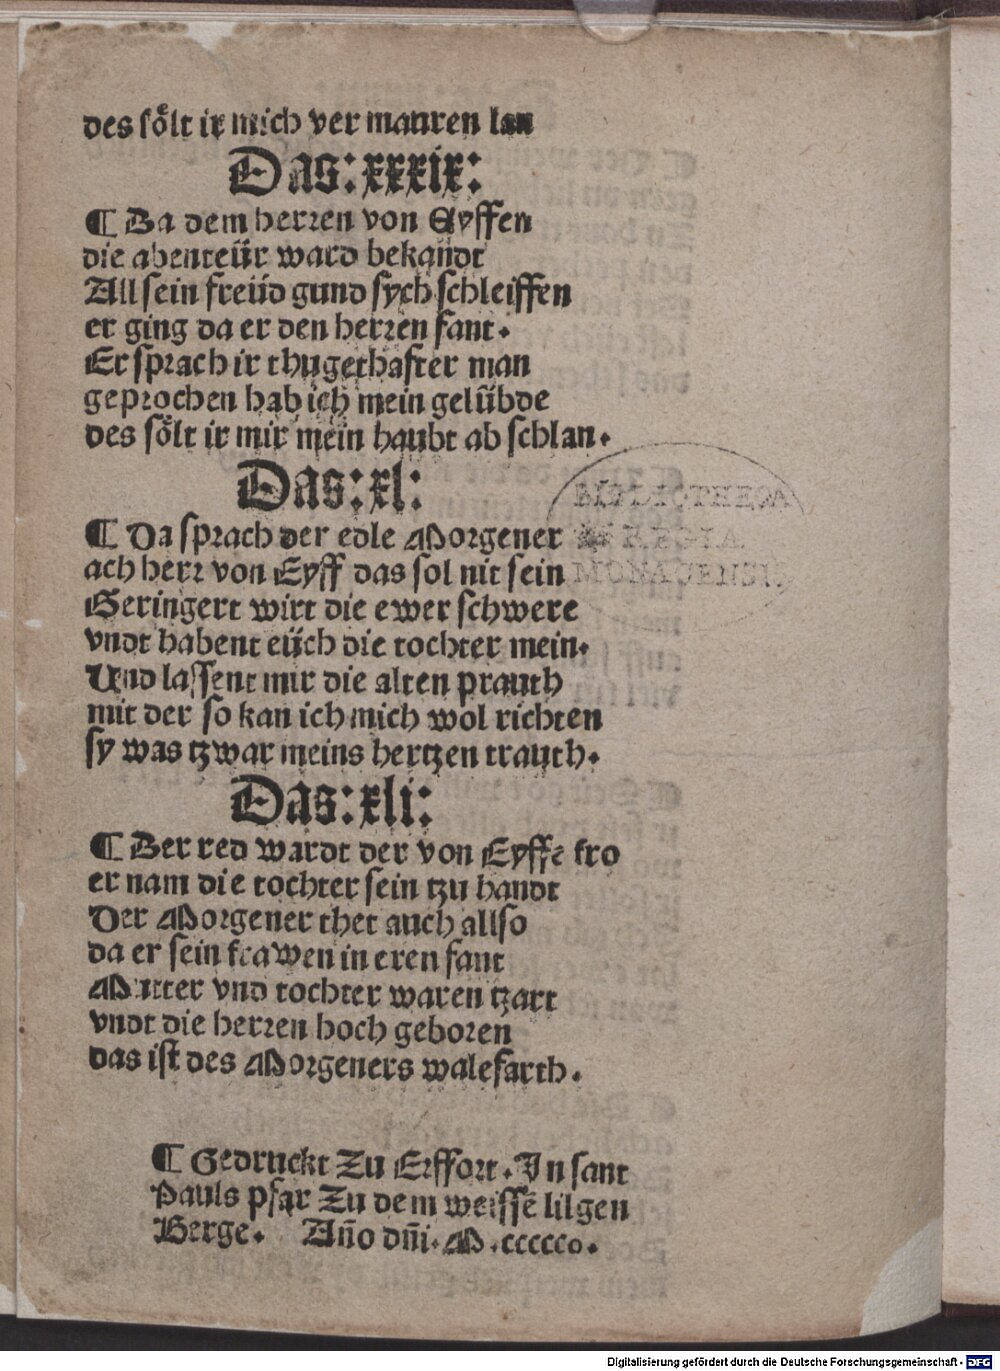 des soͤlt ir mich ver mauren lan
Das: xxxix:
¶ Da dem herren von Eyffen
die abenteür ward bekandt
All sein freüd gund sych schleiffen
er ging da er den herren fant.
Er sprach ir thugethafter man
geprochen hab ich mein gelübde
des soͤlt ir mir mein haubt ab schlan.
Das: xl:
¶ Da sprach der edle Morgener
ach herr von Eyff das sol nit sein
Geringert wirt die ewer schwere
vndt habent eüch die tochter mein.
Und lassent mir die alten prauth
mit der so kan ich mich wol richten
sy was tzwar meins hertzen trauth.
Das: xli:
¶ Der red wardt der von Eyffe fro
er nam die tochter sein tzu handt
Der Morgener thet auch allso
da er sein frawen in eren fant
Mutter vnd tochter waren tzart
vndt die herren hoch geboren
das ist des Morgeners walefarth.
¶ Gedruckt Zu Erffort. In sant
Pauls pfar Zu dem weissē lilgen
Berge. Año dñi. M. ccccco.
BIBLIOTHECA
REGIA
MONACENSIS
Digitalisierung gefördert durch die Deutsche Forschungsgemeinschaft - DFG